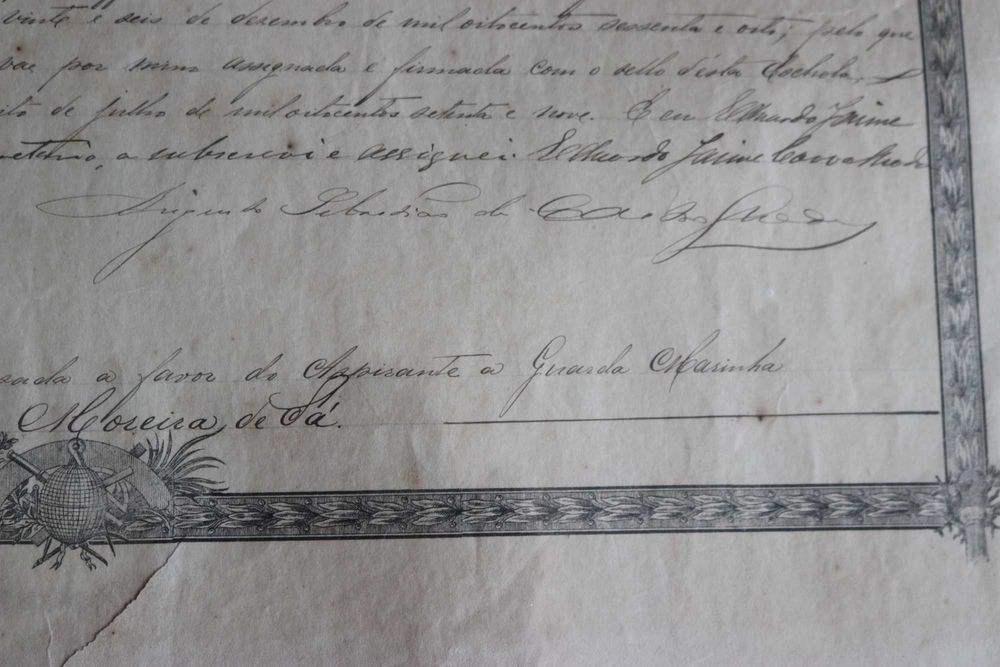 vinte e seis de dezembro de mil oitocentos sessenta e oito; pelo que
vae por mim assignada e firmada com o sello d'esta Eschola,
ito de julho de mil oitocentos setenta e nove. E eu Eduardo Jaime
retario, a subscrevi e assignei. Eduardo Jaime
Sebastião de Castro
sada a favor do Aspirante a Guarda Marinha
Moreira de Sá.